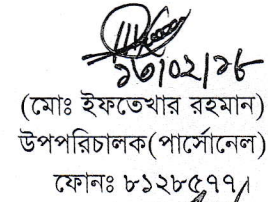 ১৩/০২/১৮
(মোঃ ইফতেখার রহমান)
উপপরিচালক(পার্সোনেল)
ফোনঃ ৮১২৮৫৭৭